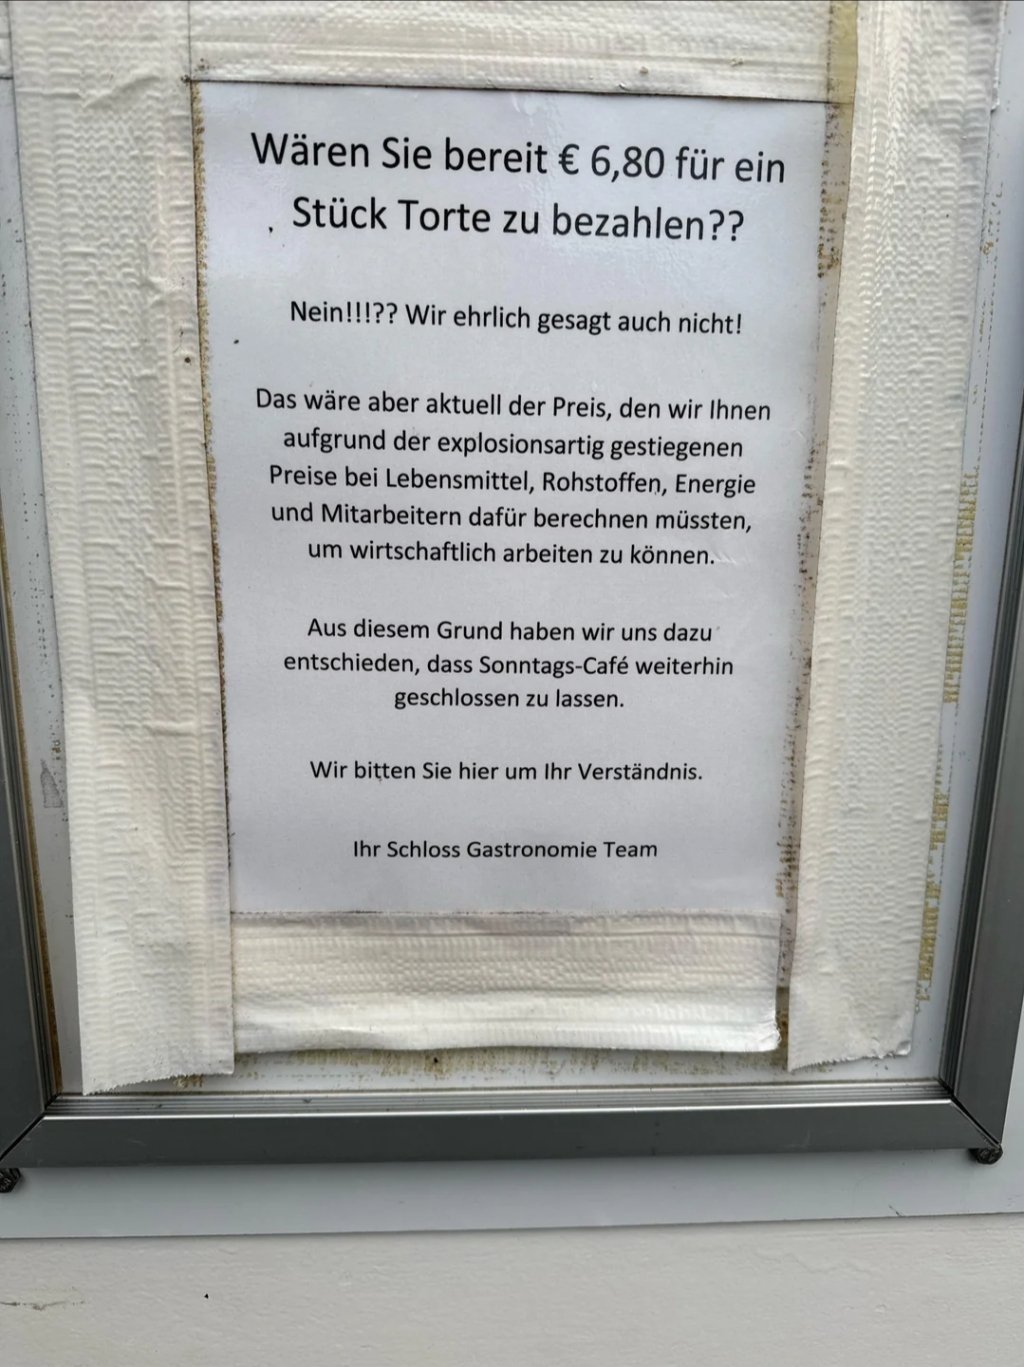 Wären Sie bereit € 6,80 für ein
Stück Torte zu bezahlen??
Nein!!!?? Wir ehrlich gesagt auch nicht!
Das wäre aber aktuell der Preis, den wir Ihnen
aufgrund der explosionsartig gestiegenen
Preise bei Lebensmittel, Rohstoffen, Energie
und Mitarbeitern dafür berechnen müssten,
um wirtschaftlich arbeiten zu können.
Aus diesem Grund haben wir uns dazu
entschieden, dass Sonntags-Café weiterhin
geschlossen zu lassen.
Wir bitten Sie hier um Ihr Verständnis.
Ihr Schloss Gastronomie Team